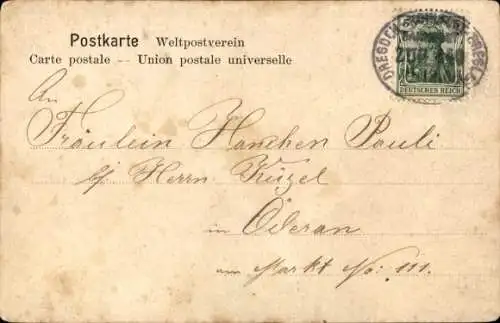 Postkarte Weltpostverein
Carte postale -- Union postale universelle
DRESDEN
DEUTSCHES REICH
An
Fräulein Hannchen Pauli
b/ Herrn Kügel
in Öderan
am Markt No: 111.